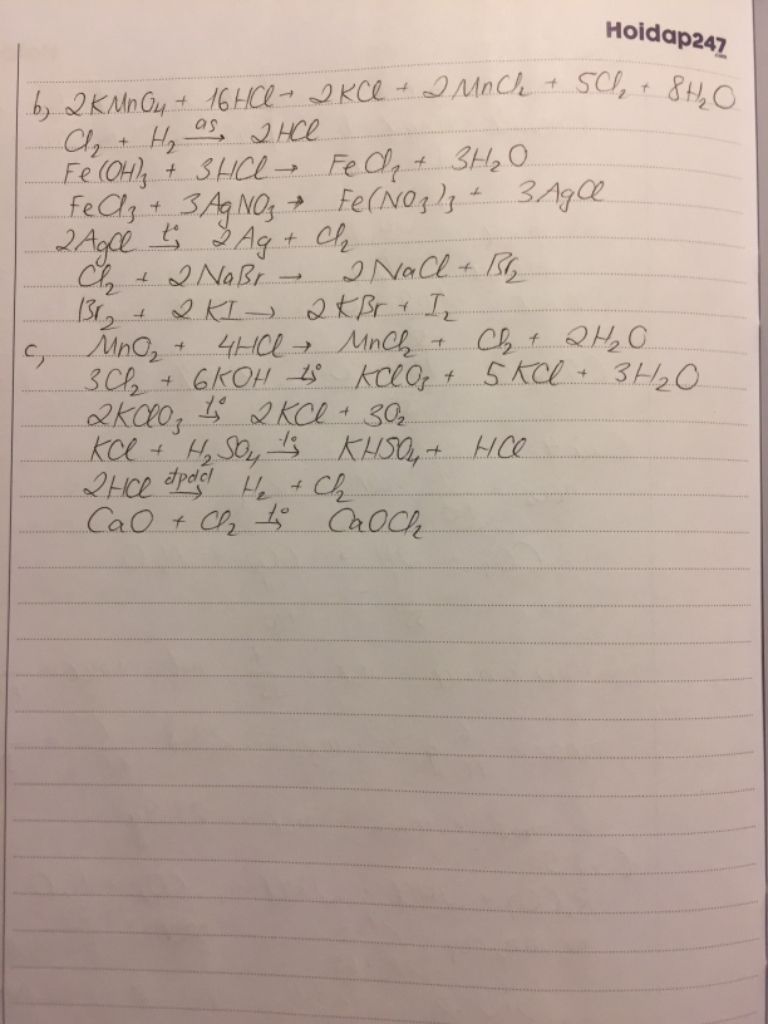 Hoidap247
.com
b, 2KMnO4 + 16HCl → 2KCl + 2MnCl2 + 5Cl2 + 8H2O
Cl2 + H2 as→ 2HCl
Fe(OH)3 + 3HCl → FeCl3 + 3H2O
FeCl3 + 3AgNO3 → Fe(NO3)3 + 3AgCl
2AgCl t°→ 2Ag + Cl2
Cl2 + 2NaBr → 2NaCl + Br2
Br2 + 2KI → 2KBr + I2
c, MnO2 + 4HCl → MnCl2 + Cl2 + 2H2O
3Cl2 + 6KOH t°→ KClO3 + 5KCl + 3H2O
2KClO3 t°→ 2KCl + 3O2
KCl + H2SO4 t°→ KHSO4 + HCl
2HCl đpdd→ H2 + Cl2
CaO + Cl2 t°→ CaOCl2